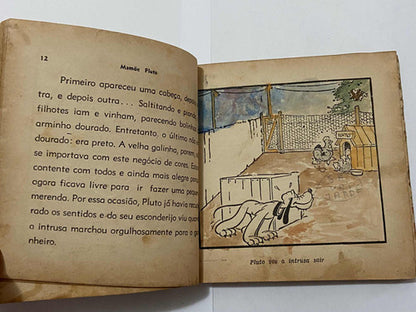 12
Mamãe Pluto
Primeiro apareceu uma cabeça, depois
tra, e depois outra... Saltitando e piando
filhotes iam e vinham, parecendo bolinhas
arminho dourado. Entretanto, o último não
dourado: era preto. A velha galinha, porém,
se importava com este negócio de cores. Es
contente com todos e ainda mais alegre po
agora ficava livre para ir fazer uma peque
merenda. Por essa ocasião, Pluto já havia recu
rado os sentidos e do seu esconderijo viu qua
a intrusa marchou orgulhosamente para o g
nheiro.
Pluto viu a intrusa sair